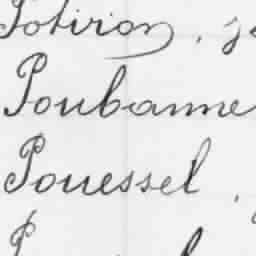 Potiron, J
Poubanne
Pouessel,